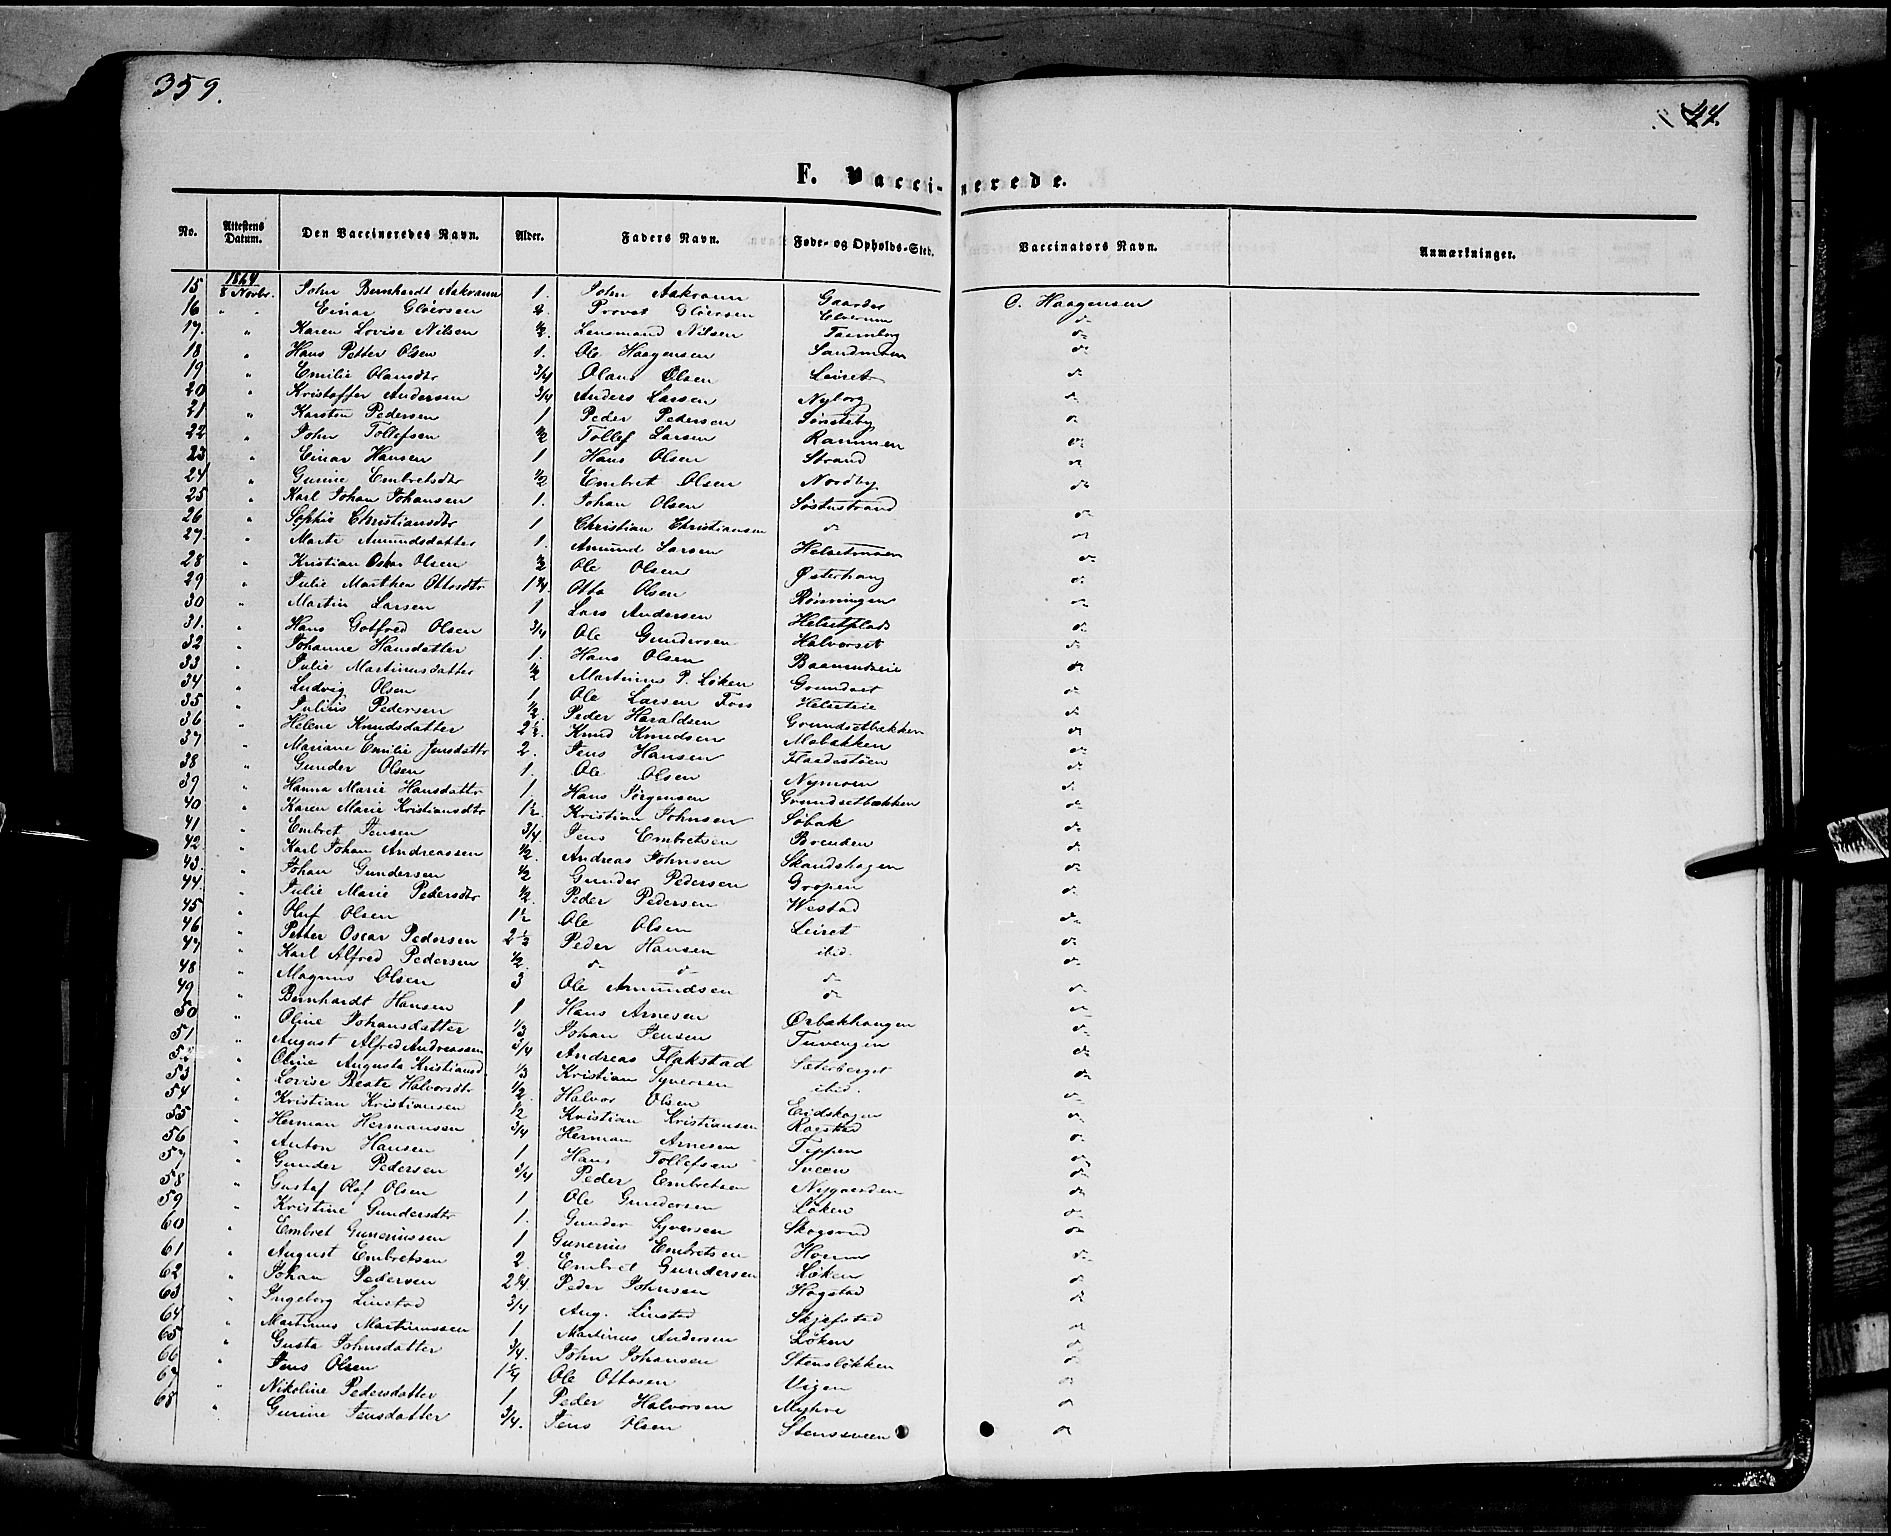 359.
44.
F. Vaccinerede.
No. Attestens Datum. Den Vaccineredes Navn. Alder. Faders Navn. Føde- og Opholds-Sted. Vaccinators Navn. Anmærkninger.
1864
15 8 Novbr. John Bernhardt Aakrann 1. John Aakrann Gaarder O. Haagensen
16 " " Einar Gløersen Provst Gløersen Elverum do
17. " Karen Lovise Nilsen ½ Lensmand Nilsen do
18 " Hans Petter Olsen 1. Ole Haagensen Sandmoen do
19 " Emilie Olausdtr 3/4 Olaus Olsen Leiret do
20 " Kristoffer Andersen 3/4 Anders Larsen Nyborg do
21 " Karsten Pedersen 1 Peder Pedersen do
22 " John Tollefsen ½ Tollef Larsen Rammen do
23 " Einar Hansen 1 Hans Olsen Strand do
24 " Gunine Embretsdtr ½ Embret Olsen Nordby do
25 " Karl Johan Johansen 1. Johan Olsen Søstustrand do
26 " Sophie Christiansdtr 1 Christian Christiansen do do
27. " Marte Amundsdatter 1. Amund Larsen Helsetmoen do
28 " Kristian Oskar Olsen ½ Ole Olsen Østerhaug do
29 " Julie Marthea Ottosdtr 1¼. Otto Olsen Rønningen do
30 " Martin Larsen 1 Lars Andersen Helsetplads do
31. " Hans Gotfred Olsen 3/4 Ole Gundersen Halvorset do
32 " Johanne Hansdatter 1. Hans Olsen do
33 " Julie Martinusdatter ½ Martinus P. Løken Grundset do
34 " Ludvig Olsen 1 Ole Larsen Foss Helseteie do
35 " Julius Pedersen ½. Peder Haraldsen Grundsetbækken do
36 " Helene Knudsdatter 2½. Knud Knudsen Mobækken do
37 " Mariane Emilie Jensdatr 2. Jens Hansen Flaadestøen do
38 " Gunder Olsen 1. Ole Olsen Nymoen do
39 " Hanna Marie Hansdattr 1. Hans Jørgensen Grundsetbækken do
40 " Karen Marie Kristiansdtr 1½. Kristian Johnsen Søbak do
41 " Embret Jensen 3/4 Jens Embretsen Brenden do
42. " Karl Johan Andreassen ½. Andreas Johnsen Skandshagen do
43. " Johan Gundersen ½ Gunder Pedersen Gropen do
44. " Julie Marie Pedersdtr ½. Peder Pedersen Westad do
45 " Oluf Olsen 1½ Ole Olsen Leiret do
46 " Petter Oscar Pedersen 2½ Peder Hansen ibid. do
47 " Karl Alfred Pedersen ½. do do do do
48 " Magnus Olsen 3 Ole Amundsen do do
49 " Bernhardt Hansen 1 Hans Arnesen Ørbækhaugen do
50 " Oline Johansdatter 1/3 Johan Jensen Tuvengen do
51 " August Alfred Andreassen 3/4 Andreas Flakstad Sæterberget do
52 " Oline Augusta Kristiansd. 1/3 Kristian Syversen ibid. do
53 " Lovise Beate Halvorsdtr ½. Halvor Olsen Eidskogen do
54 " Kristian Kristiansen ½ Kristian Kristiansen Rogstad do
55 " Herman Hermansen 3/4 Herman Arnesen Teppen do
56 " Anton Hansen 1 Hans Tollefsen Sveen do
57 " Gunder Pedersen 3/4 Peder Embretsen Nygaarden do
58 " Gustaf Olaf Olsen 1 Ole Gundersen Løken do
59 " Kristine Gundersdtr 1. Gunder Syversen Skogsrud do
60 " Embret Gunerussen 1 Gunerius Embretsen do
61 " August Embretsen 2. Embret Gundersen Løken do
62 " Johan Pedersen 2¼. Peder Johnsen Hagstad do
63 " Ingeborg Linstad 3/4 Aug. Linstad Skjefstad do
64 " Martinus Martinussen 1 Martinus Andersen Løken do
65 " Gusta Johnsdatter 3/4. John Johansen Stensløkken do
66 " Jens Olsen 1¼ Ole Ottosen Vigen do
67 " Nikoline Pedersdatter 1. Peder Halvorsen Myhre do
68 " Gurine Jensdatter 3/4. Jens Olsen Stenssveen do